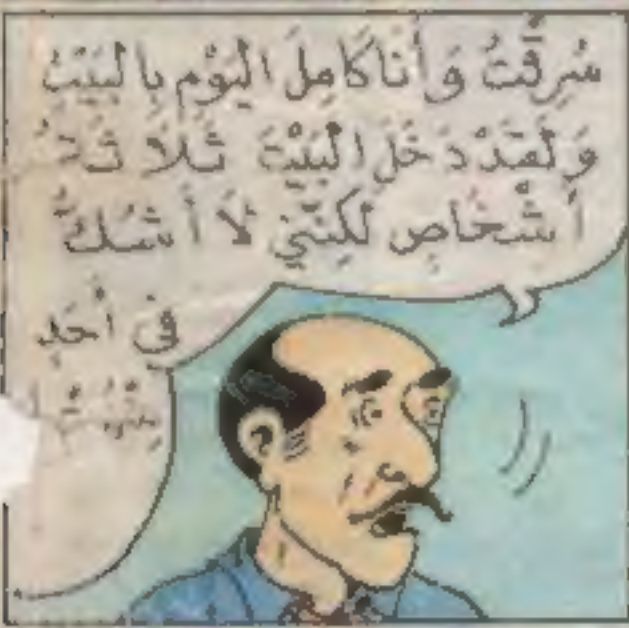 سُرِقْتُ وَأَنَا كَامِلَ الْيَوْمِ بِالْبَيْتِ
وَلَقَدْ دَخَلَ الْبَيْتَ ثَلَاثَةُ
أَشْخَاصٍ لَكِنَّنِي لَا أَشُكُّ
فِي أَحَدٍ